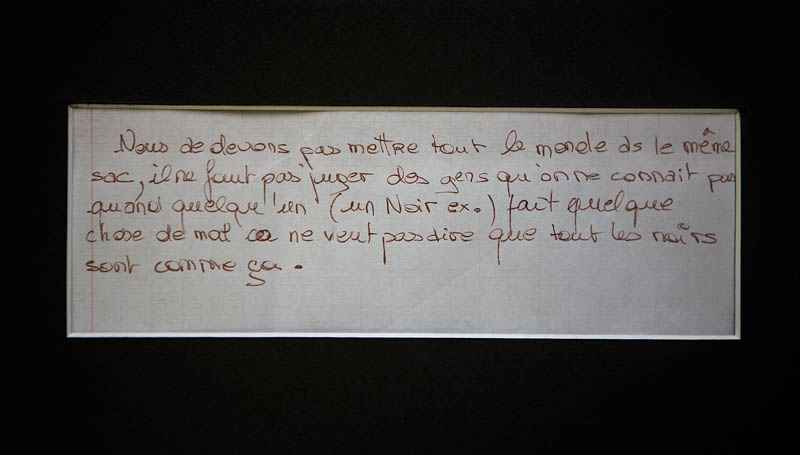 Nous de devons pas mettre tout le monde ds le même
sac, il ne faut pas juger des gens qu'on ne connait pas
quand quelqu'un (un Noir ex.) fait quelque
chose de mal ca ne veut pas dire que tout les noirs
sont comme ça.